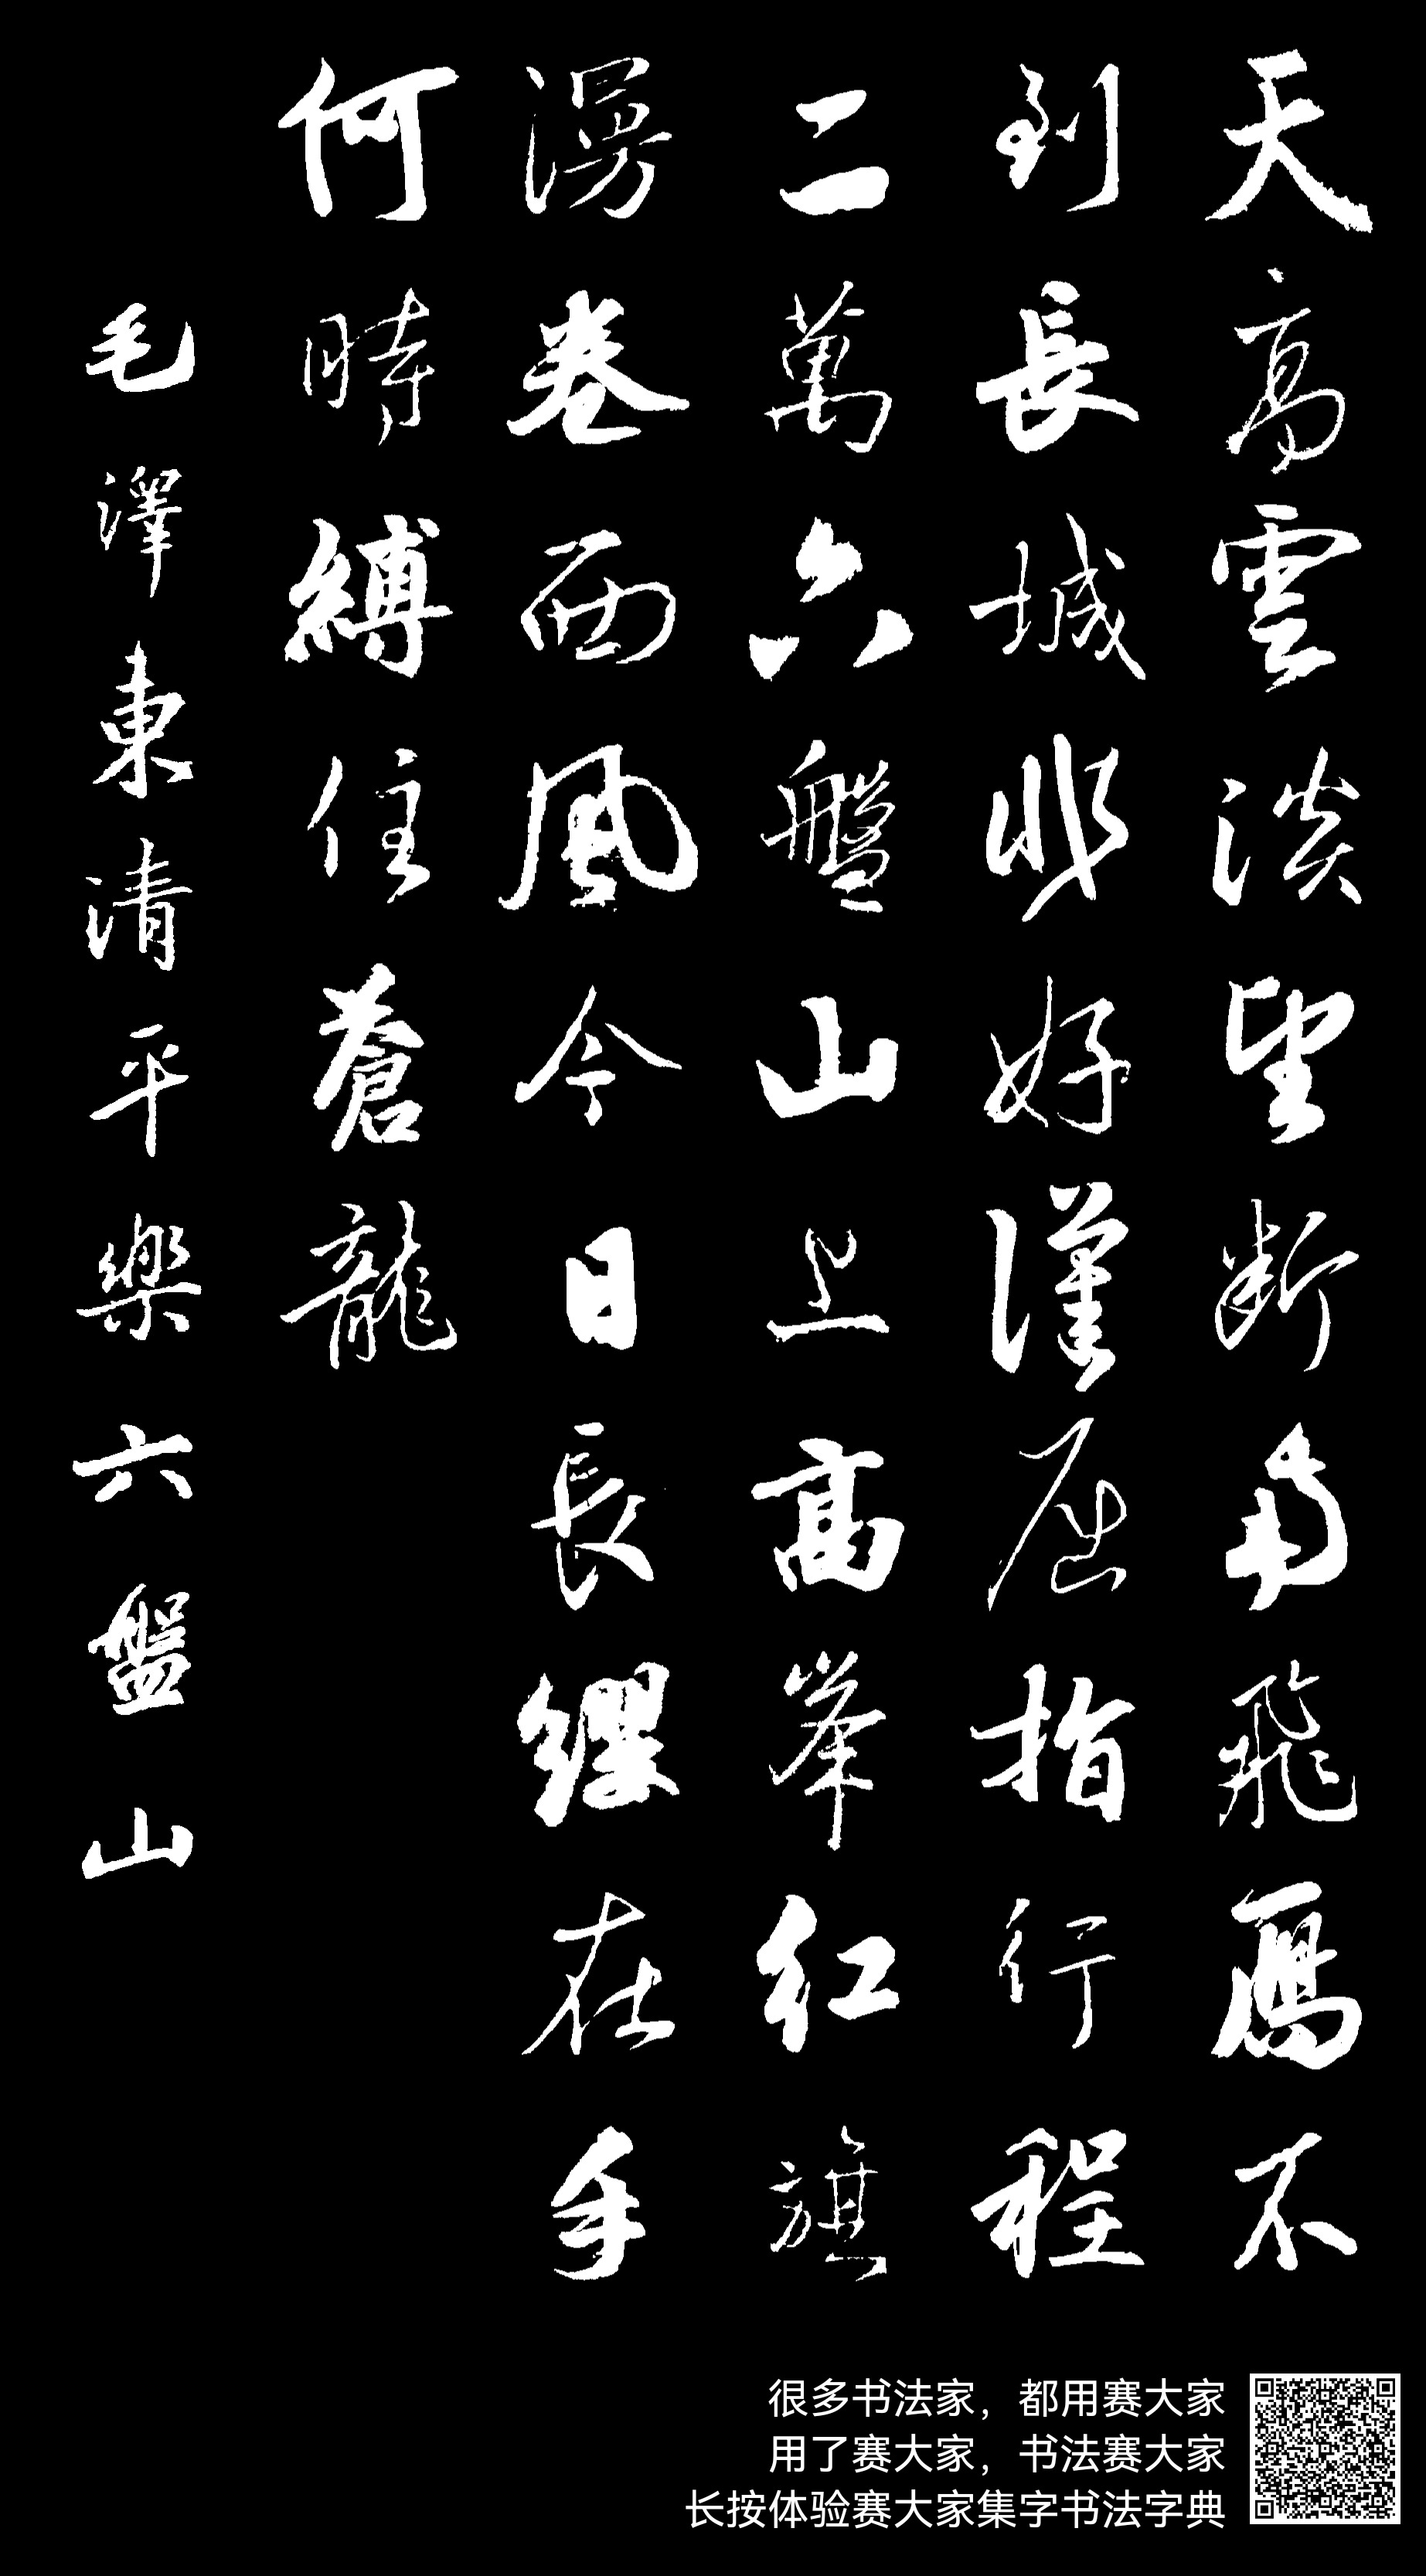 天高雲淡望断南飛雁不
到長城非好漢屈指行程
二萬六盤山上高峯红旗
漫卷西風今日長纓在手
何時縛住蒼龍
毛澤東清平樂六盤山
很多书法家，都用赛大家
用了赛大家，书法赛大家
长按体验赛大家集字书法字典